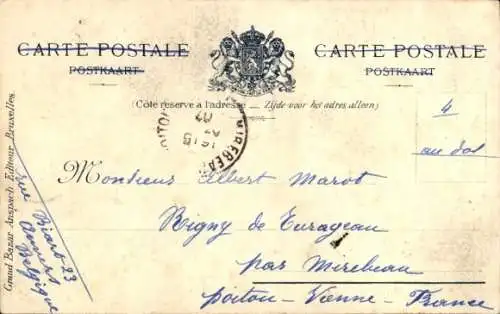 CARTE POSTALE
POSTKAART
CARTE POSTALE
POSTKAART
(Côté réservé à l'adresse — Zijde voor het adres alleen)
4
au dos
MIREBEAU
16 15
07
Monsieur Albert Marot
Rigny de Turageau
par Mirebeau
Poitou - Vienne - France
rue Biart 23
Anvers
Belgique
Grand Bazar Anspach Editeur Bruxelles.